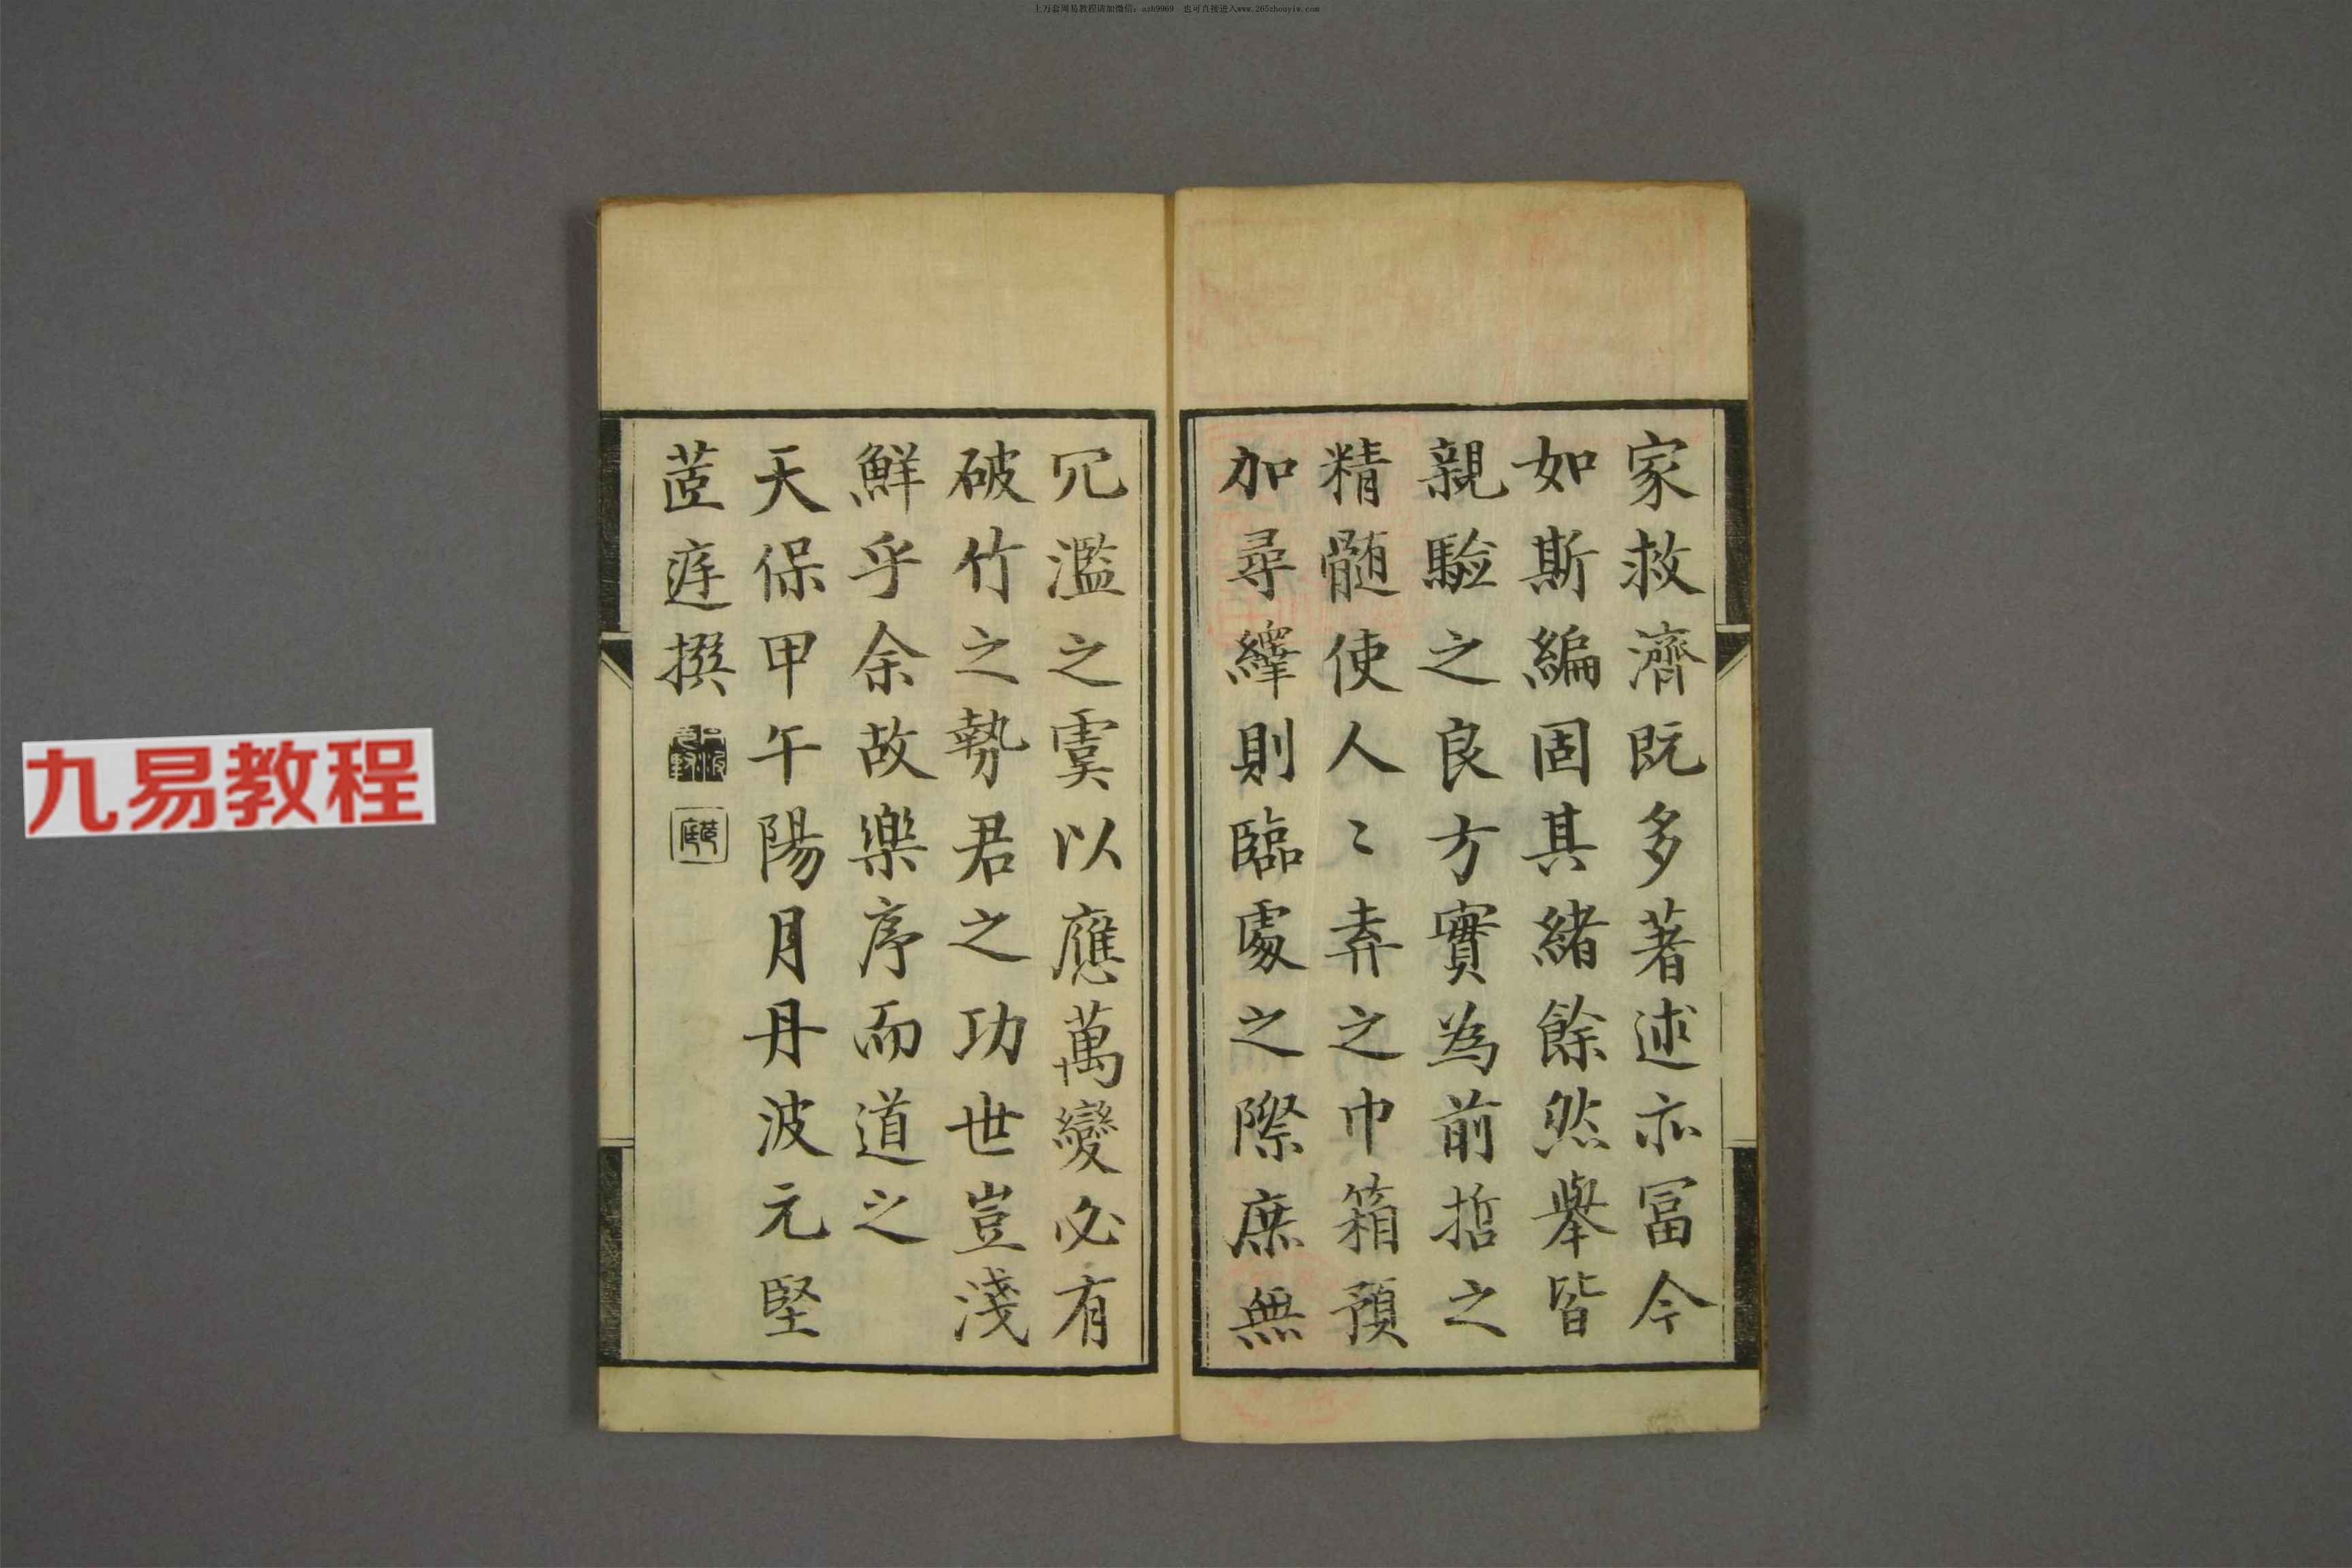 上万套周易教程请加微信：azh9969　也可直接进入www.265zhouyiw.com
家救濟既多著述亦冨今
如斯編固其緒餘然舉皆
親驗之良方實為前哲之
精髓使人〻弆之巾箱預
加尋繹則臨處之際庶無
冗濫之虞以應萬變必有
破竹之勢君之功世豈淺
鮮乎余故樂序而道之
天保甲午陽月丹波元堅
茝庭撰
九易教程